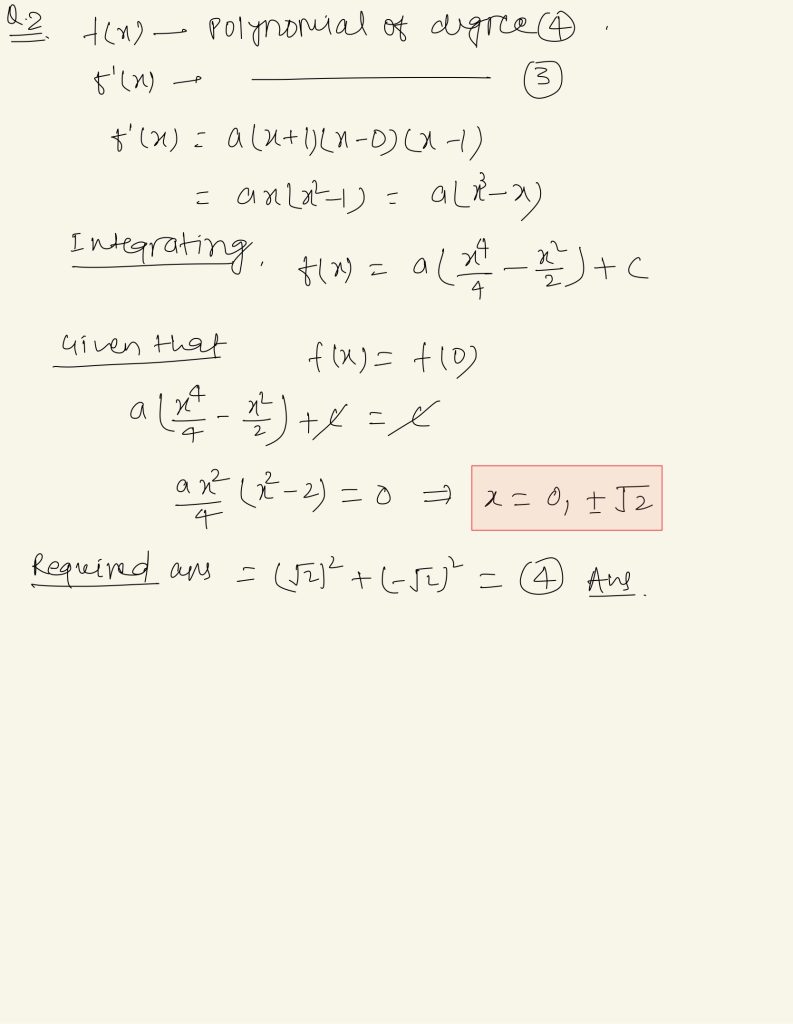 Q.2 f(x) → Polynomial of degree ④.
f'(x) → ———— ③
f'(x) = a(x+1)(x-0)(x-1)
= ax(x²-1) = a(x³-x)
Integrating, f(x) = a(x⁴/4 - x²/2) + C
Given that f(x) = f(0)
a(x⁴/4 - x²/2) + C = C
ax²/4 (x²-2) = 0 ⇒ x = 0, ±√2
Required ans = (√2)² + (-√2)² = ④ Ans.